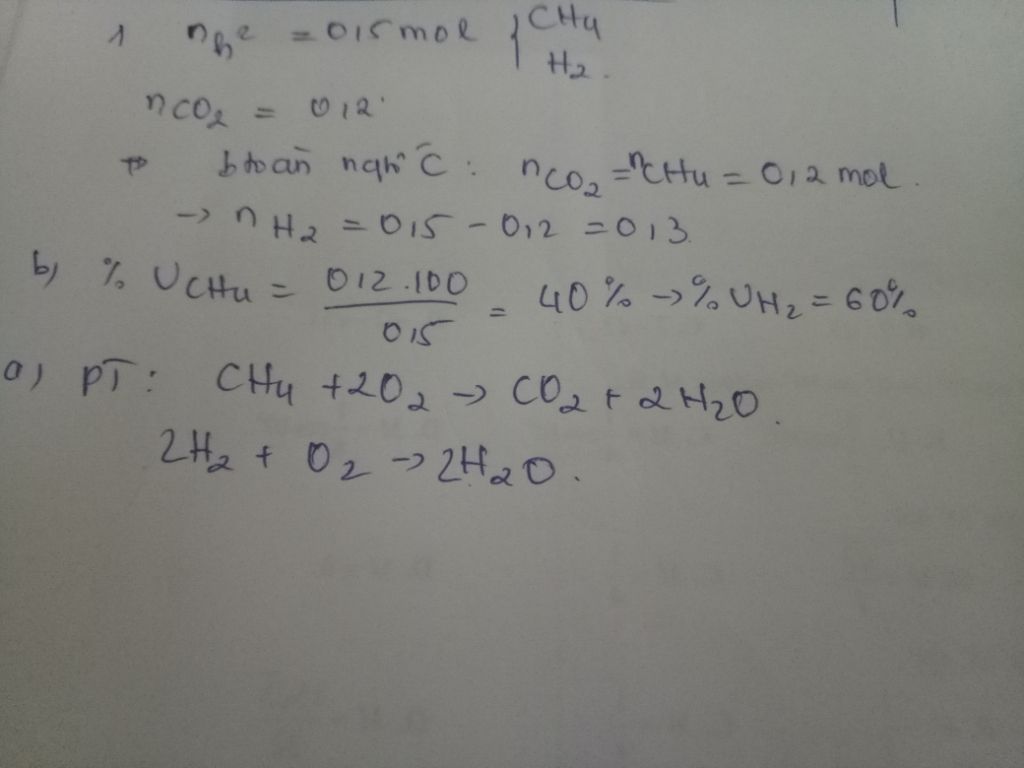 1 nhh = 0,5 mol { CH4
H2.
nCO2 = 0,2
=> btoàn ngtố C: nCO2 = nCH4 = 0,2 mol.
-> nH2 = 0,5 - 0,2 = 0,3.
b) % VCH4 = 0,2.100 / 0,5 = 40% -> % VH2 = 60%
a) PT: CH4 + 2O2 -> CO2 + 2H2O.
2H2 + O2 -> 2H2O.